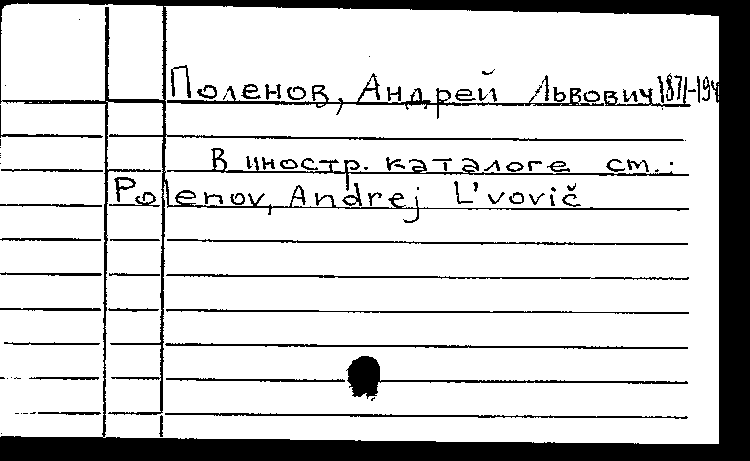 Поленов, Андрей Львович 1871-194
В иностр. каталоге см.:
Polenov, Andrej L'vovič